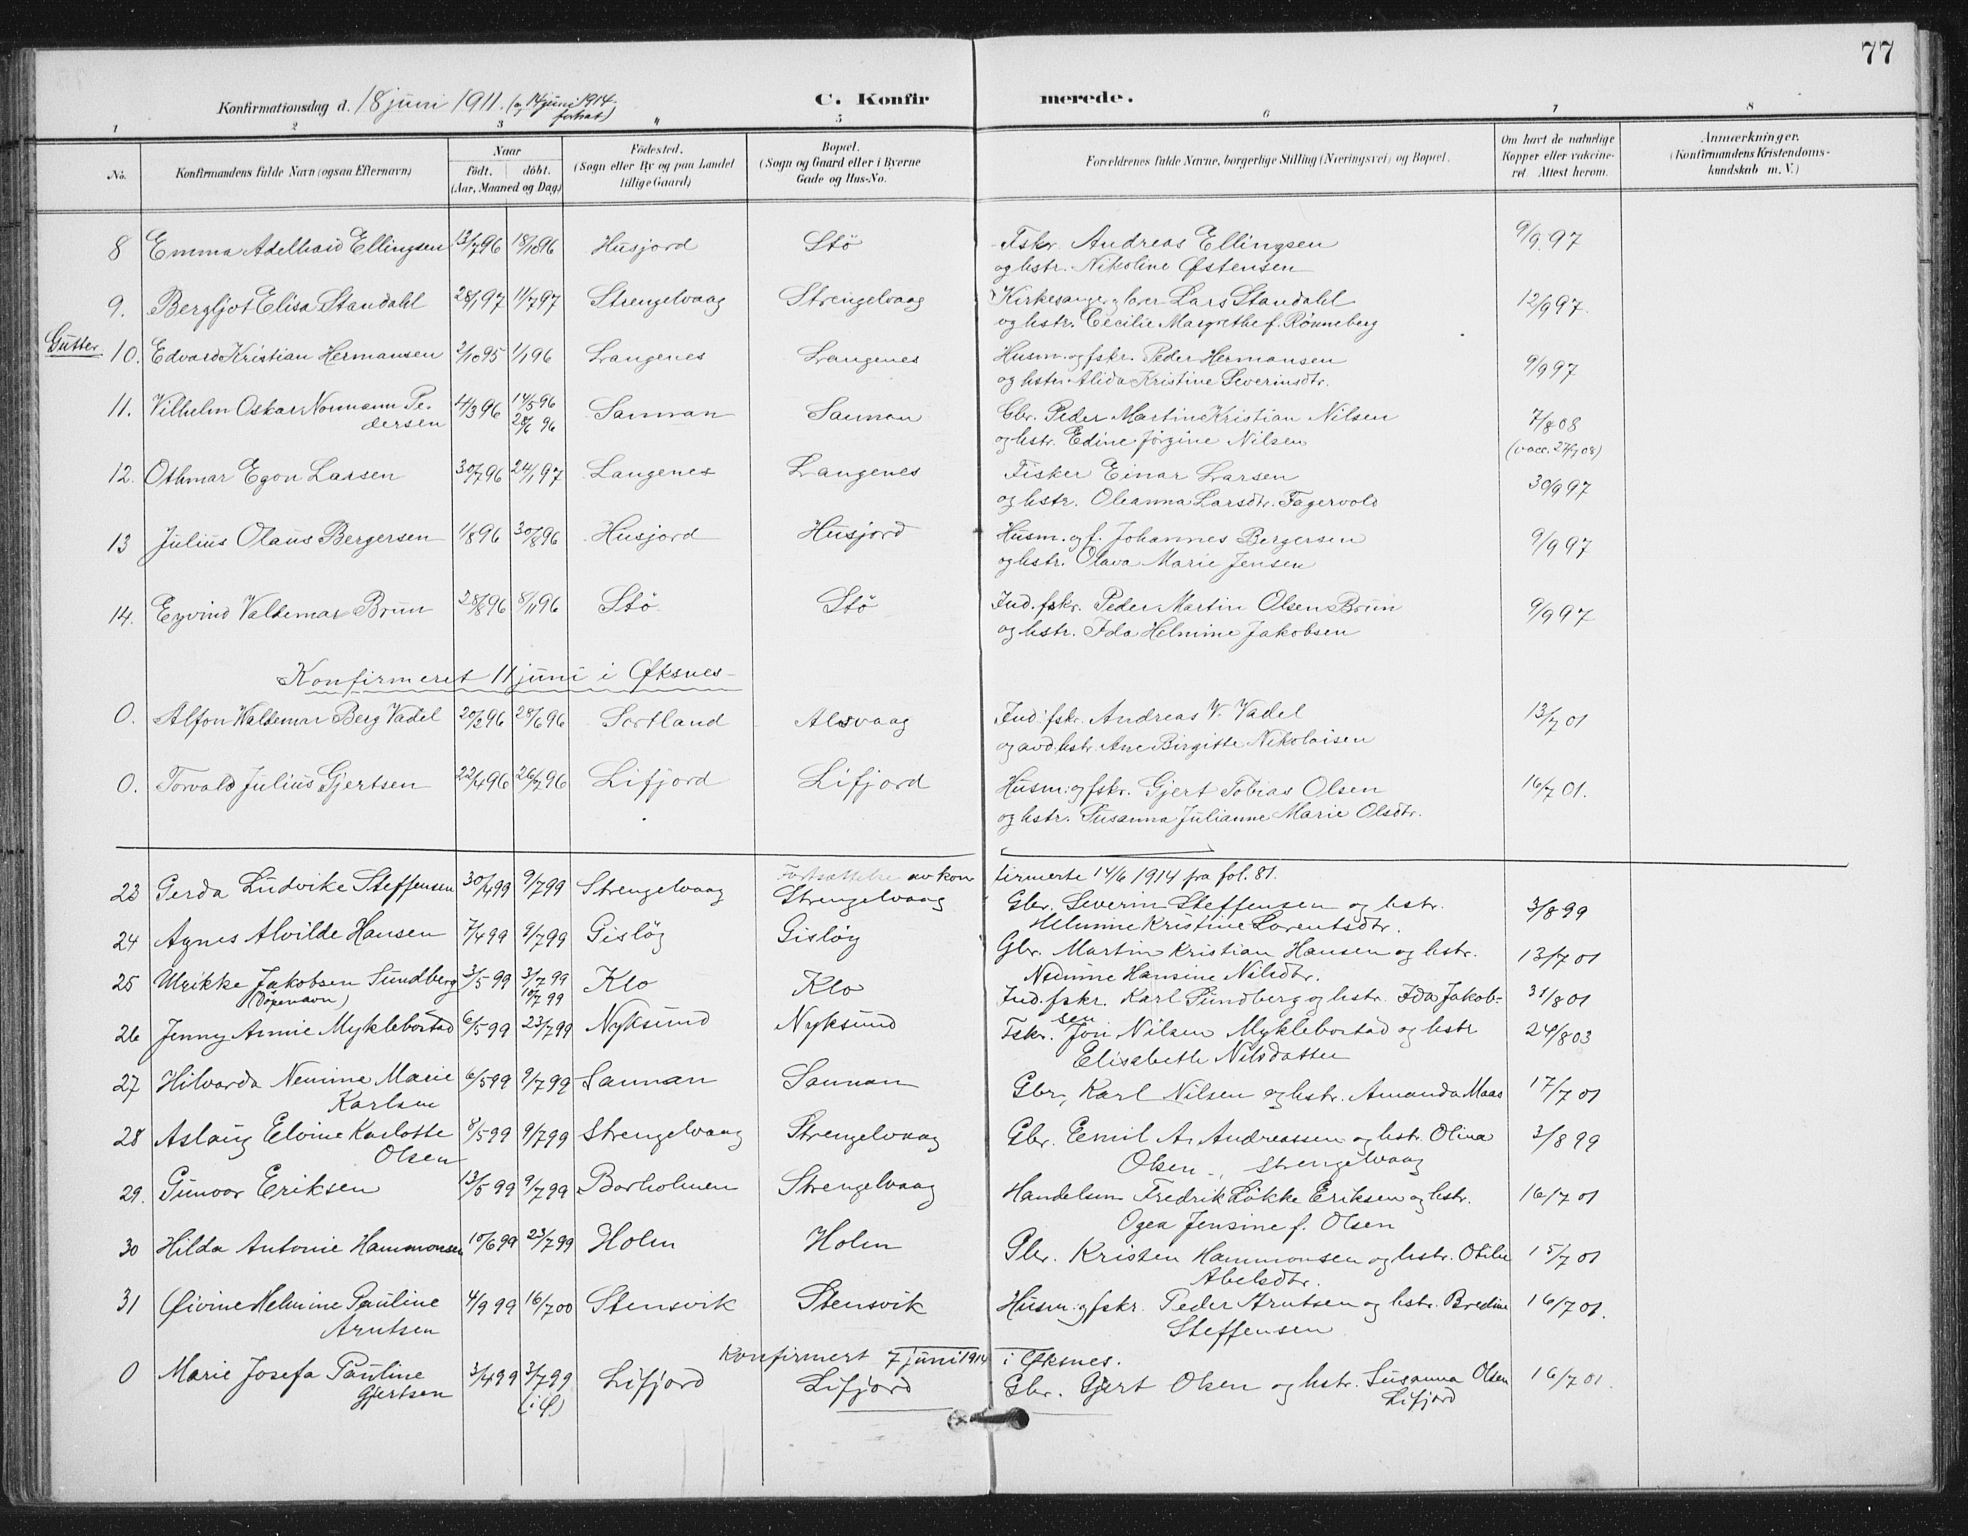 77
Konfirmationsdag d. 18 juni 1911. (og 14 juni 1914 fortsat) C. Konfirmerede.
1 2 3 4 5 6 7 8
No. Konfirmandens fulde Navn (ogsaa Efternavn) Naar födt. döbt. (Aar, Maaned og Dag) Födested. (Sogn eller By og paa Landet tillige Gaard) Bopæl. (Sogn og Gaard eller i Byerne Gade og Hus-No. Forældrenes fulde Navne, borgerlige Stilling (Næringsvei) og Bopæl. Om havt de naturlige Kopper eller vakcineret Attest herom. Anmærkninger. (Konfirmandens Kristendomskundskab m. V.)
8 Emma Adelhaid Ellingsen 13/7 96 18/10 96 Husjord Stö Fskr. Andreas Ellingsen 9/9 97
og hstr. Nikoline Østensen
9. Bergljot Elisa Standahl 28/1 97 11/7 97 Strengelvaag Strengelvaag Kirkesanger og lærer Lars Standahl 12/9 97.
og hstr. Cecilie Margrethe f. Rønneberg
Gutter
10. Edvard Kristian Hermansen 2/10 95 1/1 96 Langenes Langenes Husm. og fskr. Peder Hermansen 9/9 97
og hstr. Alida Kristine Severinsdtr.
11. Vilhelm Oskar Normann Pe- 4/3 96 14/5 96 Sannan Sannan Gbr. Peder Martin Kristian Nilsen 7/8 08
dersen 28/6 96 og hstr. Edine Jörgine Nilsen (vacc. 27/7 08)
12. Othmar Egon Larsen 30/7 96 24/1 97 Langenes Langenes Fisker Einar Larsen 30/9 97
og hstr. Oleanna Larsdtr. Fagervold
13 Julius Olaus Bergersen 1/8 96 30/8 96 Husjord Husjord Husm. og f. Johannes Bergersen 9/9 97
og hstr. Olava Marie Jensen
14. Eyvind Valdemar Brun 28/8 96 8/11 96 Stö Stö Ind. fskr. Peder Martin Olsen Brun 9/9 97
og hstr. Ida Helmine Jakobsen
Konfirmeret 11 juni i Øksnes
0. Alfon Waldemar Berg Vadel 20/3 96 28/6 96 Sortland Alsvaag Ind. fskr. Andreas V. Vadel 13/7 01
og avd. hstr. Ane Birgitte Nikolaisen
0. Torvald Julius Gjertsen 22/4 96 26/7 96 Lifjord Lifjord Husm. og fskr. Gjert Tobias Olsen 16/7 01.
og hstr. Susanna Julianne Marie Olsdtr.
Fortsættelse av konfirmerte 14/6 1914 fra fol. 81.
23 Gerda Ludvike Steffensen 30/4 99 9/7 99 Strengelvaag Strengelvaag Gbr. Severin Steffensen og hstr. 3/8 99
Helmine Kristine Lorentsdtr.
24 Agnes Alvilde Hansen 7/4 99 9/7 99 Gislöy Gislöy Gbr. Martin Kristian Hansen og hstr. 13/7 01
Nemine Hansine Nilsdtr.
25 Ulrikke Jakobsen Sundberg 3/5 99 3/7 99 Klo Klo Ind. fskr. Karl Sundberg og hstr. Ida Jakob- 31/8 01
(Døpenavn) 10/7 99 sen
26 Jenny Annie Myklebostad 6/5 99 23/7 99 Nyksund Nyksund Fskr. Jon Nilsen Myklebostad og hstr 24/8 03
Elisabeth Nilsdatter
27 Hilvarda Nemine Marie 6/5 99 9/7 99 Sannan Sannan Gbr, Karl Nilsen og hstr. Amanda Maas 17/7 01
Karlsen
28 Aslaug Elvine Karlotte 8/5 99 9/7 99 Strengelvaag Strengelvaag Gbr. Emil A. Andreassen og hstr. Olina 3/8 99
Olsen Olsen, Strengelvaag
29. Gunvor Eriksen 13/5 99 9/7 99 Barholmen Strengelvaag Handelsm Fredrik Løkke Eriksen og hstr. 16/7 01
Ogea Jensine f. Olsen
30 Hilda Antonie Hammonsen 10/6 99 23/7 99 Holm Holm Gbr. Kristen Hammonsen og hstr. Otilie 15/7 01
Abelsdtr.
31 Øivine Helmine Pauline 4/9 99 16/7 00 Stensvik Stensvik Husm. og fskr. Peder Arntsen og hstr. Bredine 16/7 01.
Arntsen Steffensen
Konfirmert 7 juni 1914 i Øksnes.
0 Marie Josefa Pauline 3/4 99 3/7 99 Lifjord Lifjord Gbr. Gjert Olsen og hstr. Susanna Olsen 16/7 01.
Gjertsen (i Ø) Lifjord